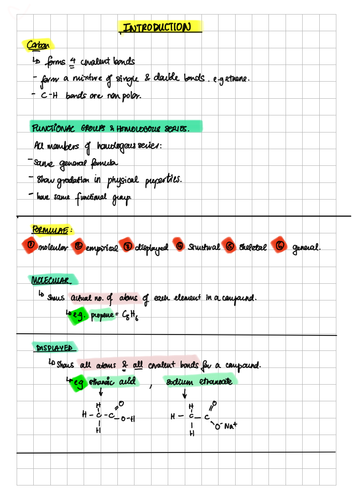 INTRODUCTION
Carbon
↳ forms 4 covalent bonds
- form a mixture of single & double bonds. e.g ethene.
- C-H bonds are non polar.
FUNCTIONAL GROUPS & HOMOLOGOUS SERIES.
All members of homologous series:
- Same general formula
- Show gradation in physical properties.
- have same functional group
FORMULAE:
① molecular ② empirical ③ displayed ④ structural ⑤ skeletal ⑥ general.
MOLECULAR
↳ Shows actual no. of atoms of each element in a compound.
↳ e.g. propene = C₃H₆
DISPLAYED
↳ Shows all atoms & all covalent bonds for a compound.
↳ e.g ethanoic acid, sodium ethanoate
H O H O
H - C - C O - H H - C - C O⁻Na⁺
H H